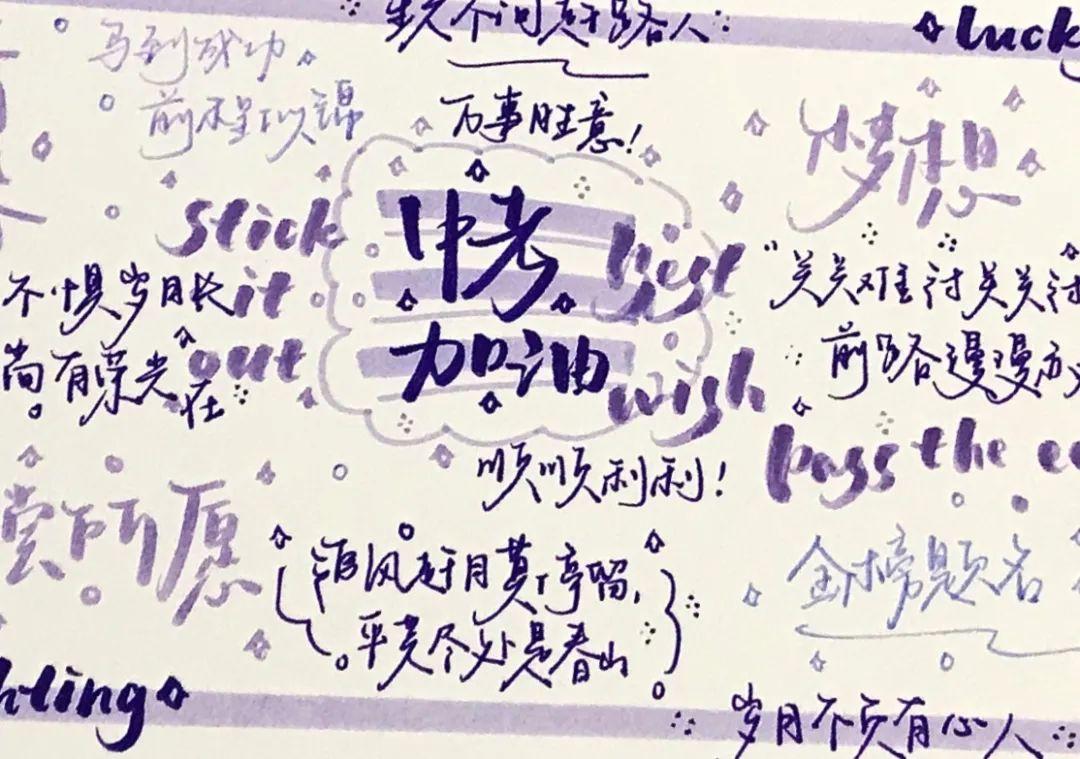 星光不问赶路人
luck
马到成功
前程似锦
万事胜意!
梦想
中考
加油
stick
it
out
best
wish
不惧岁月长
尚有荣光在
"关关难过关关过
前路漫漫亦
pass the
顺顺利利!
赏所愿
追风赶月莫停留,
平芜尽处是春山
金榜题名
hting
岁月不负有心人